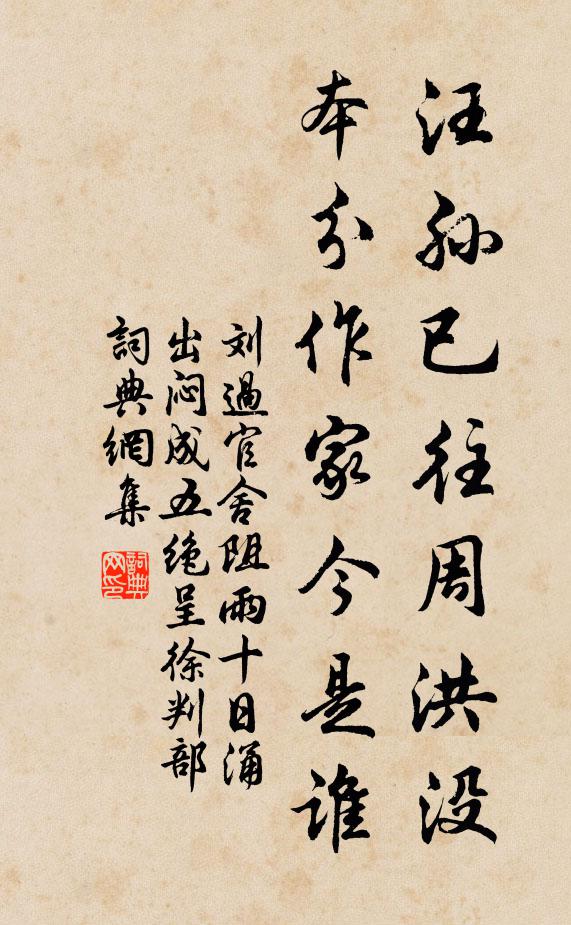 汪孙已往周洪没
本分作家今是谁
刘過官舍阻雨十日涌
出闷成五绝呈徐判部
詞典網集
詞典网印